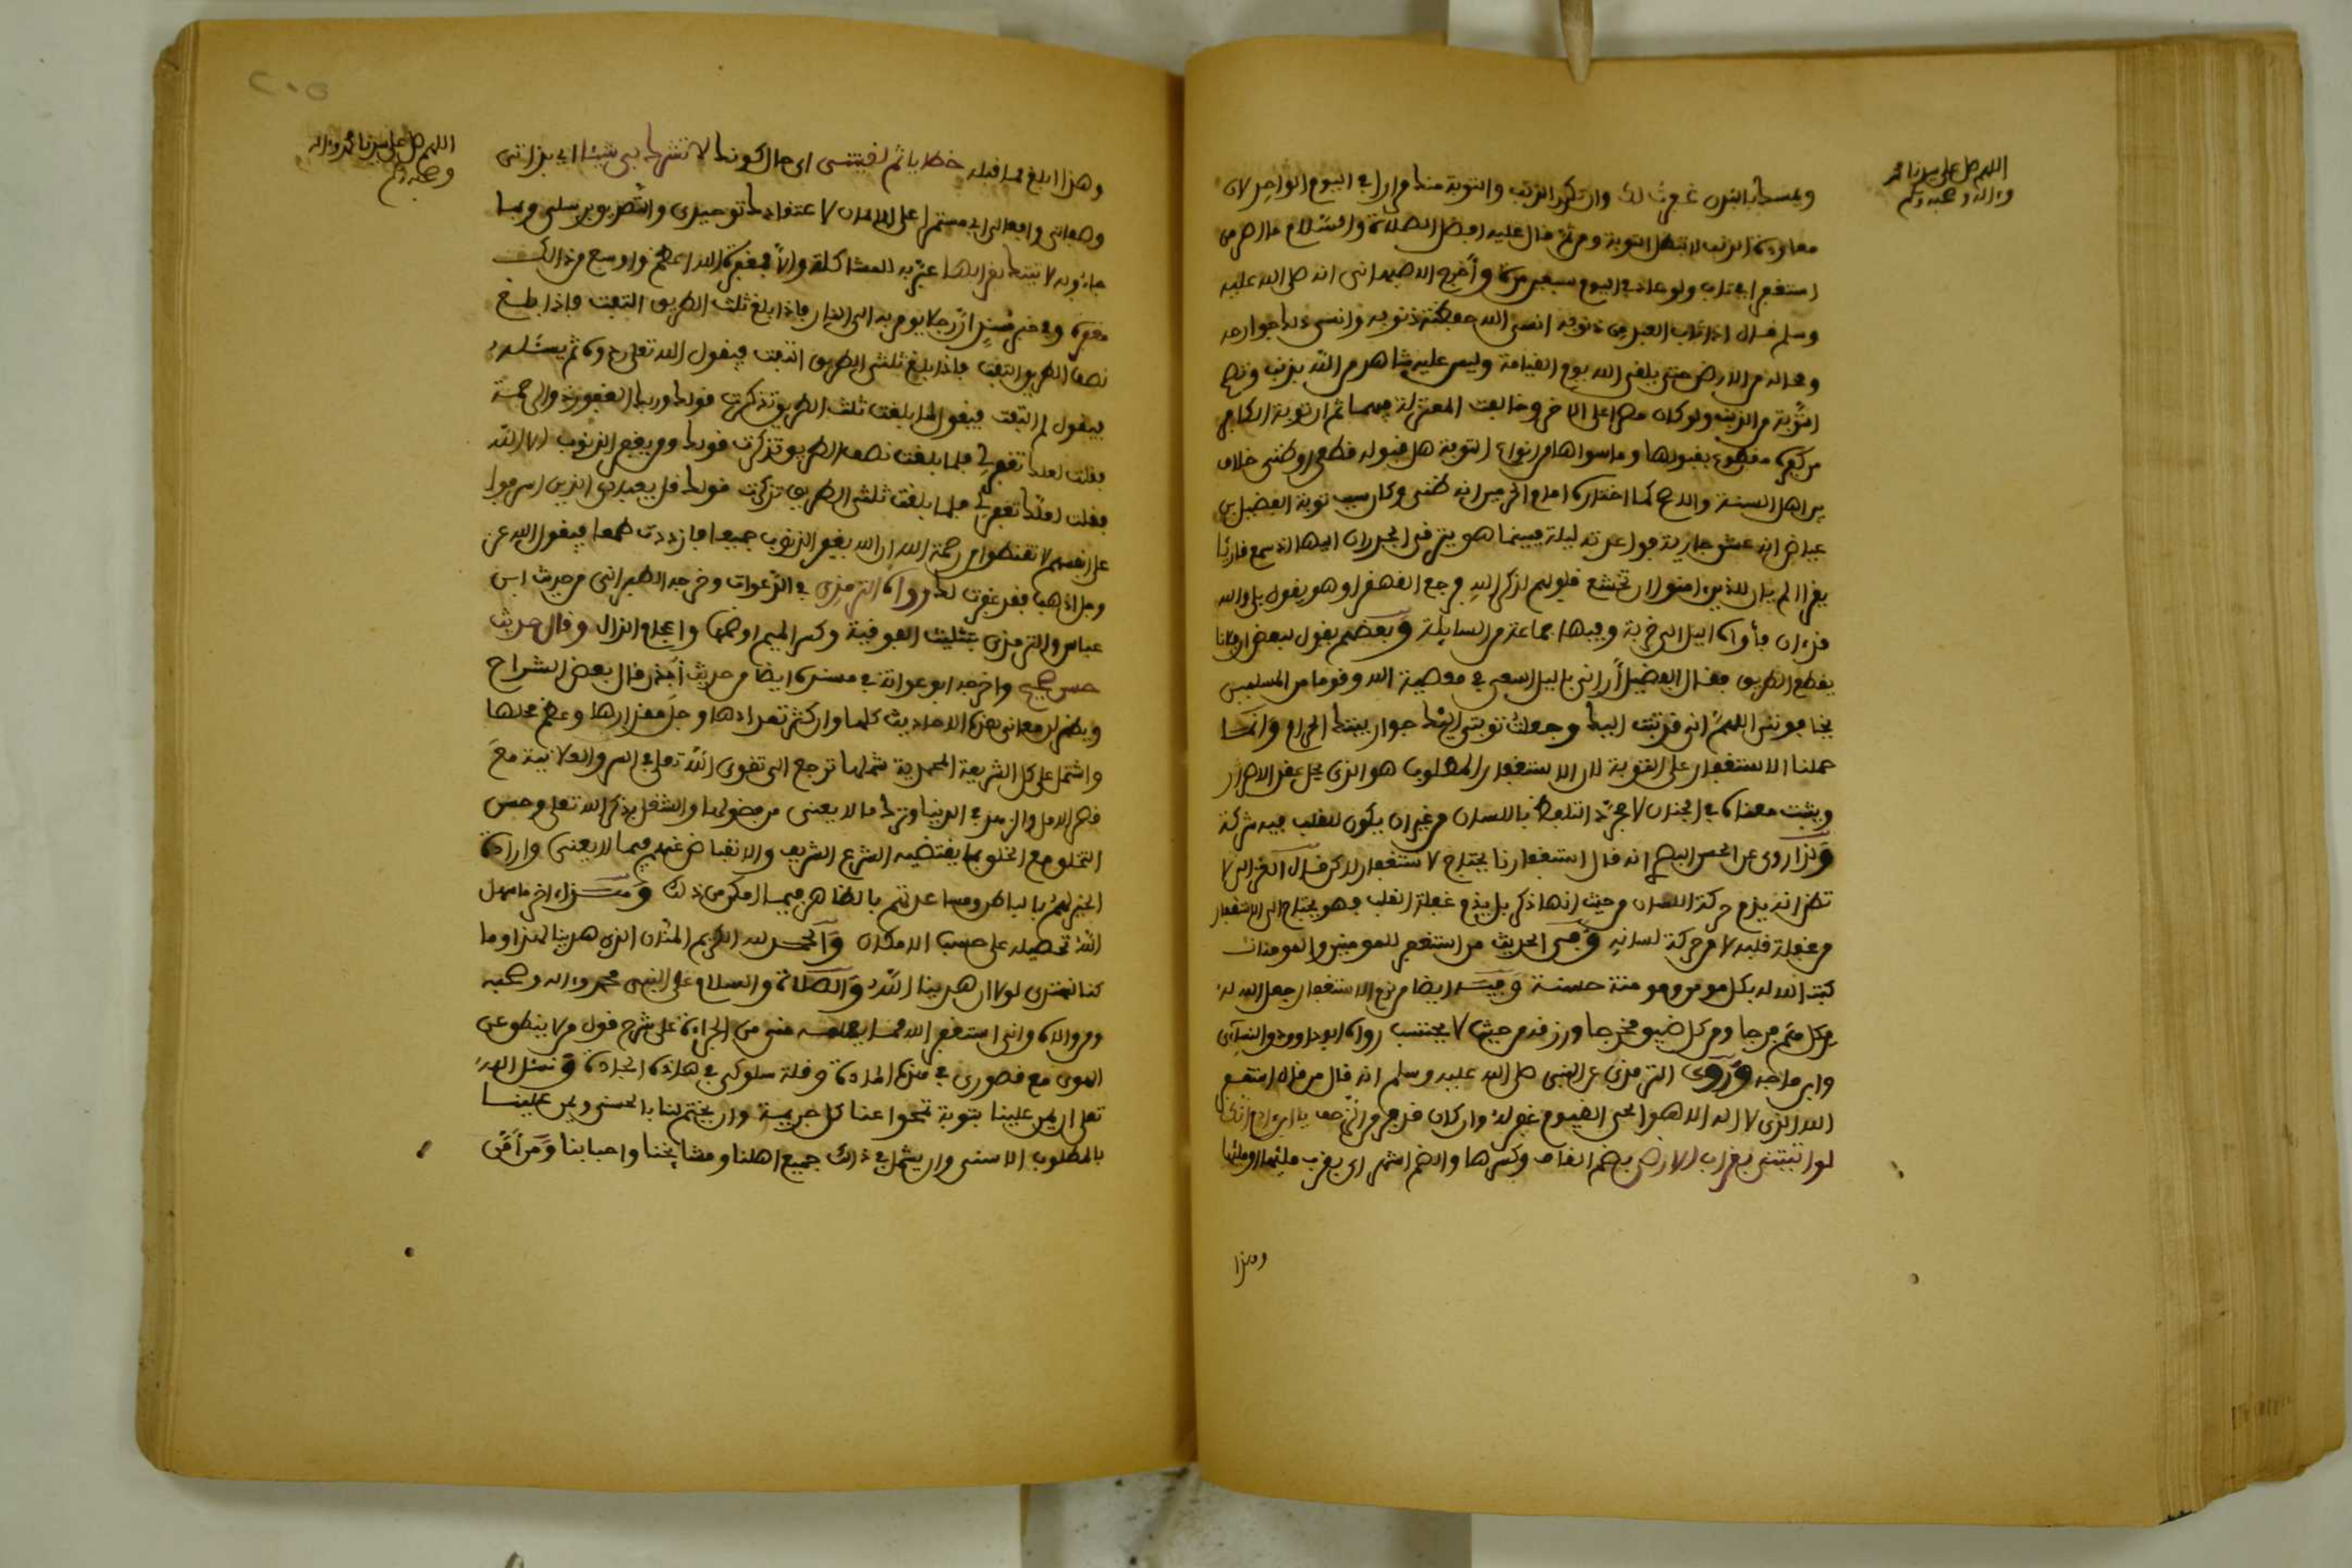 اللهم صل على سيدنا محمد
وءاله وصحبه وسلم
غفرت لك وان تكرر الذنب والتوبة منك مرارا في اليوم الواحد لان
معاودة الذنب لا تبطل التوبة ومن ثم قال عليه افضل الصلاة والسلام ما اصر من
استغفر اي تاب ولو عاد في اليوم سبعين مرة واخرج الاصبهاني انه صلى الله عليه
وسلم قال اذا تاب العبد من ذنوبه انسى الله حفظته ذنوبه وانسى ذلك جوارحه
ومعالمه من الارض حتى يلقى الله يوم القيامة وليس عليه شاهد من الله بذنب وتصح
التوبة من الذنب ولو كان مصرا على اخر وخالفت المعتزلة فيهما ثم ان توبة الكافر
من كفره مقطوع بقبولها وما سواها من انواع التوبة هل قبوله قطعي او ظني خلاف
بين اهل السنة والاصح كما اختاره امام الحرمين انه ظني وكان سبب توبة الفضيل بن
عياض انه عشق جارية فواعدته ليلة فبينما هو يرتقي الجدران اليها اذ سمع قارئا
يقرا الم يان للذين امنوا ان تخشع قلوبهم لذكر الله فرجع القهقرا وهو يقول بلى والله
قد ءان فأواه الليل الى خربة وفيها جماعة من السابلة وبعضهم يقول لبعض ان فلانا
يقطع الطريق فقال الفضيل أراني بالليل اسعى في معصية الله وقوما من المسلمين
يخافونني اللهم اني قد تبت اليك وجعلت توبتي اليك جوار بيتك الحرام وانما
حملنا الاستغفار على التوبة لان الاستغفار المطلوب هو الذي يحل عقد الاصرار
ويثبت معناه في الجنان لا مجرد التلفظ باللسان من غير ان يكون للقلب فيه شركة
ولذا روي عن الحسن البصري انه قال استغفارنا يحتاج لاستغفار لاكن قال الغزالي لا
تظن انه يذم حركة اللسان من حيث انها ذكر بل يذم غفلة القلب فهو يحتاج الى الاستغفار
من غفلة قلبه لا من حركة لسانه وفي الحديث من استغفر للمومنين والمومنات
كتب الله له بكل مومن ومومنة حسنة وفيه ايضا من لزم الاستغفار جعل الله له
من كل هم فرجا ومن كل ضيق مخرجا ورزقه من حيث لا يحتسب رواه ابو داوود والنسآئي
وابن ماجه وروى الترمذي عن النبي صلى الله عليه وسلم انه قال من قال استغفر
الله الذي لا اله الا هو الحي القيوم غفر له وان كان قد فر من الزحف يا ابن ءادم انك
لو اتيتني بقراب الارض بضم القاف وكسرها والضم اشهر اي بقرب ملئها او ملئها
وهذا
اللهم صل على سيدنا محمد وءاله
وصحبه وسلم
وهذا ابلغ مما قبله خطايا ثم لقيتني اي حال كونك لا تشرك بي شيئا اي بذاتي
وصفاتي وافعالي اي مستمرا على الايمان لاعتقادك توحيدي والتصديق برسلي وبما
جاءوا به لاتيتك بقرابها عبر به للمشاكلة والا فمغفرة الله اعظم واوسع من ذالك
مغفرة وفي خبر ان رجلا يومر به الى النار فاذا بلغ ثلث الطريق التفت فاذا بلغ
نصف الطريق التفت فاذا بلغ ثلثي الطريق التفت فيقول الله تعالى ردوه ثم يسئله
فيقول لم التفت فيقول لما بلغت ثلث الطريق تذكرت قولك وربك الغفور ذو الرحمة
فقلت لعلك تغفر لي فلما بلغت نصف الطريق تذكرت قولك ومن يغفر الذنوب الا الله
فقلت لعلك تغفر لي فلما بلغت ثلثي الطريق تذكرت قولك قل يعبادي الذين اسرفوا
على انفسهم لا تقنطوا من رحمة الله ان الله يغفر الذنوب جميعا فازددت طمعا فيقول الله عز
وجل اذهب فقد غفرت لك رواه الترمذي في الدعوات وخرجه الطبراني من حديث ابن
عباس والترمذي بتثليث الفوقية وكسر الميم او ضمها واعجام الذال وقال حديث
حسن صحيح واخرجه ابو عوانة في مسنده ايضا من حديث أبي ذر قال بعض الشراح
ويظهر ان معاني هذه الاحاديث كلها وان كثر تعدادها وجل مقدارها وعظم محلها
واشتمل على كل الشريعة المحمدية شملها ترجع الى تقوى الله تعلى في السر والعلانية مع
قصر الامل والزهد في الدنيا وترك ما لا يعني من فضولها والشغل بذكر الله تعلى وحسن
التخلق مع الخلق بما يقتضيه الشرع الشريف والانقباض عنهم فيما لا يعني وارادة
الخير لهم بالباطن ومساعدتهم بالظاهر فيما امكن من ذلك وهذا ءاخر ما سهل
الله تحصيله على حسب الامكان والحمد لله الكريم المنان الذي هدينا لهذا وما
كنا لنهتدي لولا ان هدينا الله والصلاة والسلام على النبي محمد وءاله وصحبه
ومن والاه واني استغفر الله مما يعلمه مني من الجرأة على شرح قول من لا ينطق عن
الهوى مع قصوري في هذه المادة وقلة سلوكي في هذه الجادة ونسئل الله
تعلى ان يمن علينا بتوبة تمحوا عنا كل جريمة وان يختم لنا بالحسنى ويمن علينا
بالمطلوب الاسنى وان يشمل في ذلك جميع اهلنا ومشايخنا واحبابنا ومن أمن